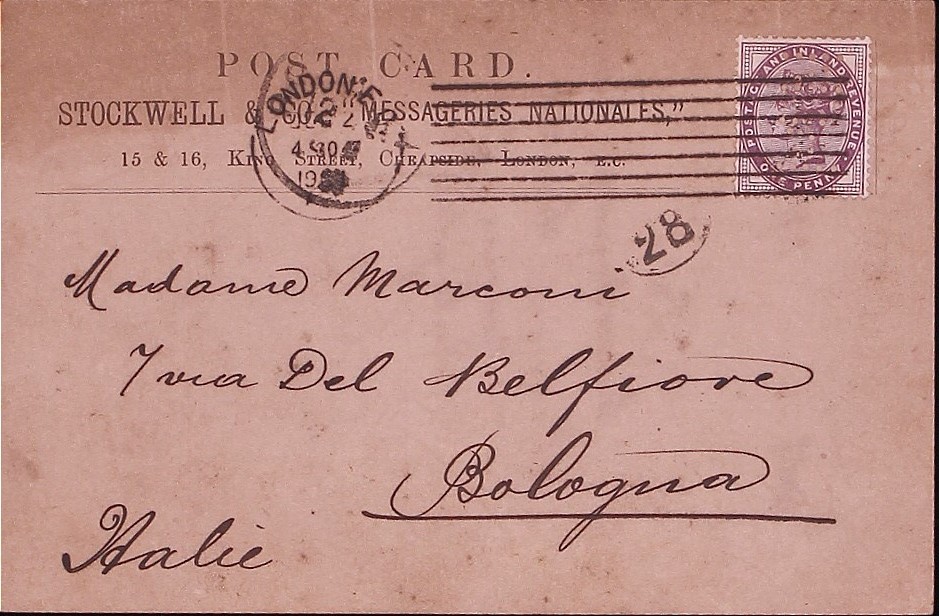 POST CARD.
STOCKWELL & CO., "MESSAGERIES NATIONALES,"
15 & 16, KING STREET, CHEAPSIDE, LONDON, E.C.
LONDON E.C
POSTAGE AND INLAND REVENUE.
ONE PENNY
87
Madame Marconi
7 via Del Belfiore
Bologna
Italie